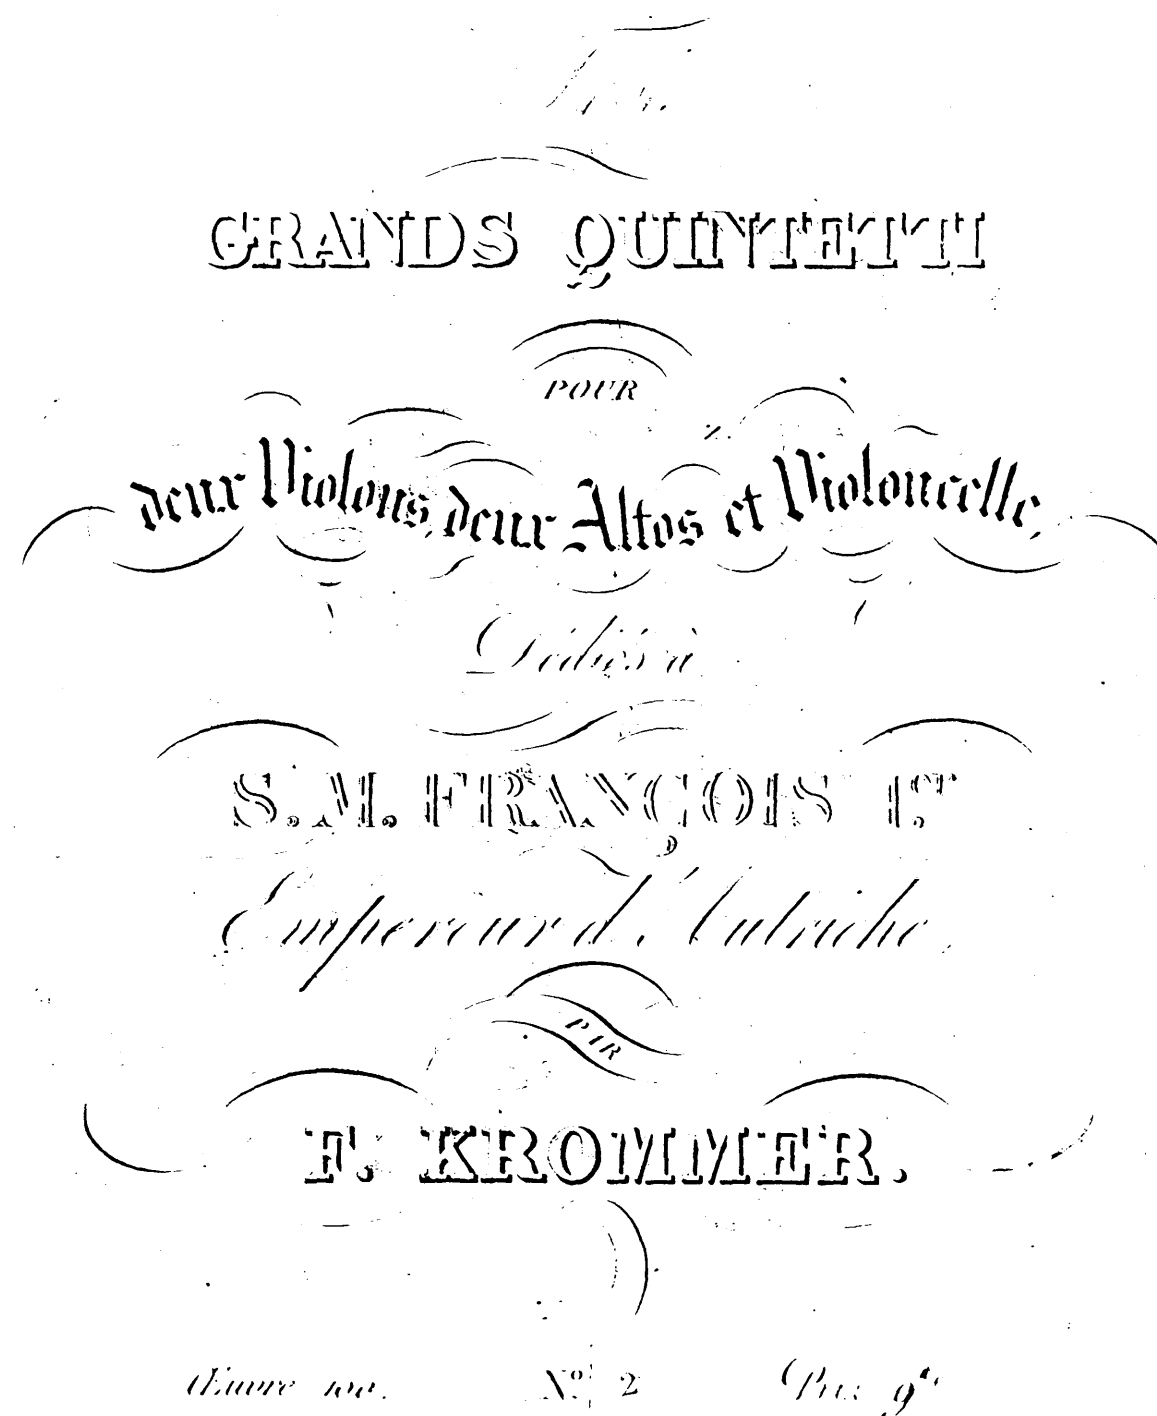 GRANDS QUINTETTI
POUR
deux Violons, deux Altos et Violoncelle,
Dédiés à
S. M. FRANÇOIS I.er
Empereur d'Autriche.
PAR
F. KROMMER.
Œuvre 100. No. 2 Prix 9